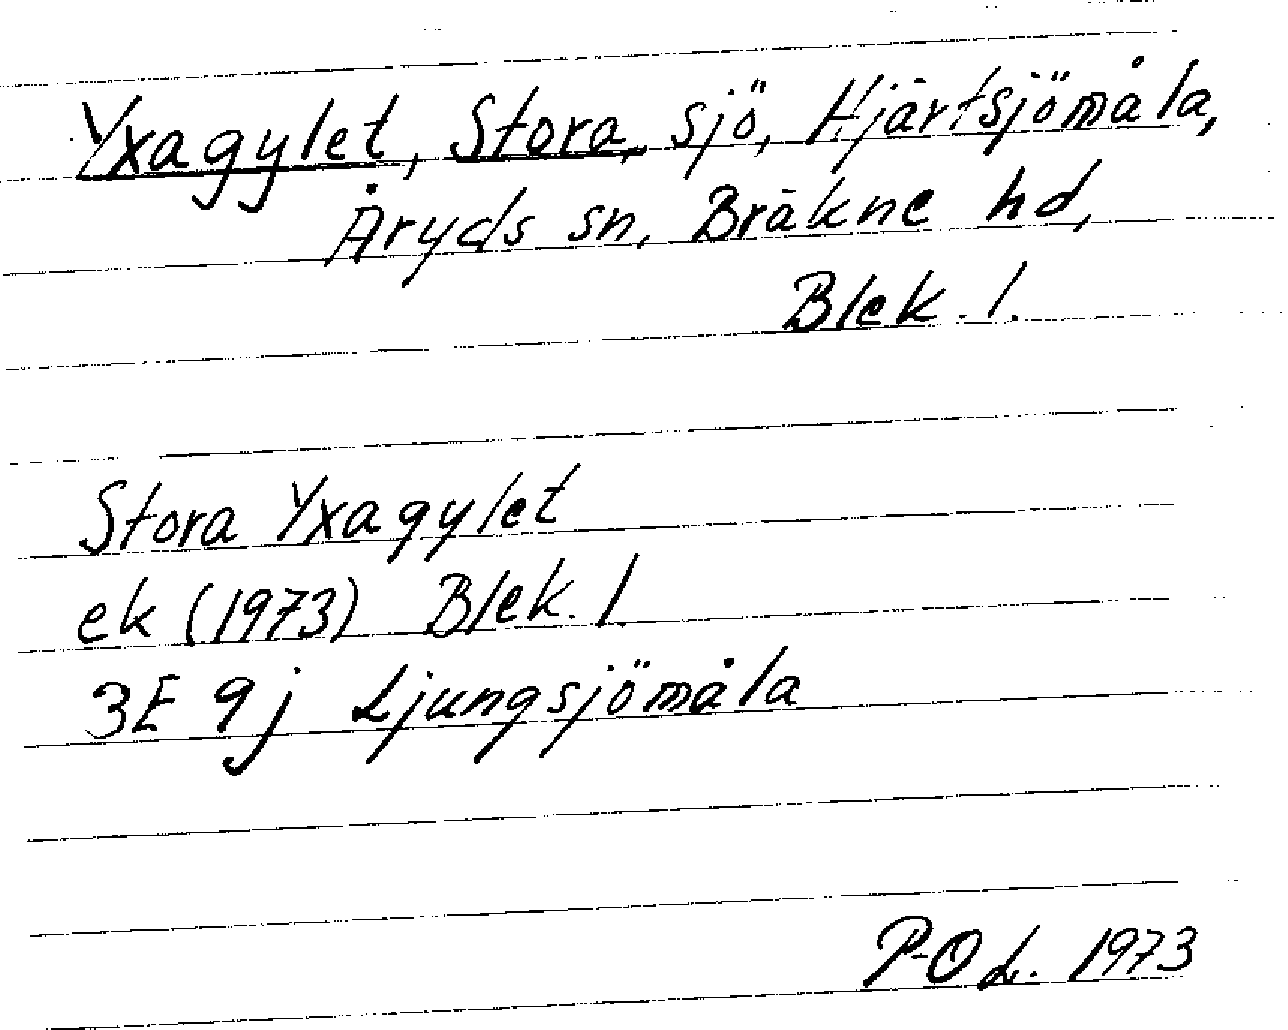 Yxagylet, Stora, sjö, Hjärtsjömåla,
Åryds sn, Bräkne hd,
Blek. l.
Stora Yxagylet
ek (1973) Blek. l.
3E 9j Ljungsjömåla
P-O L. 1973